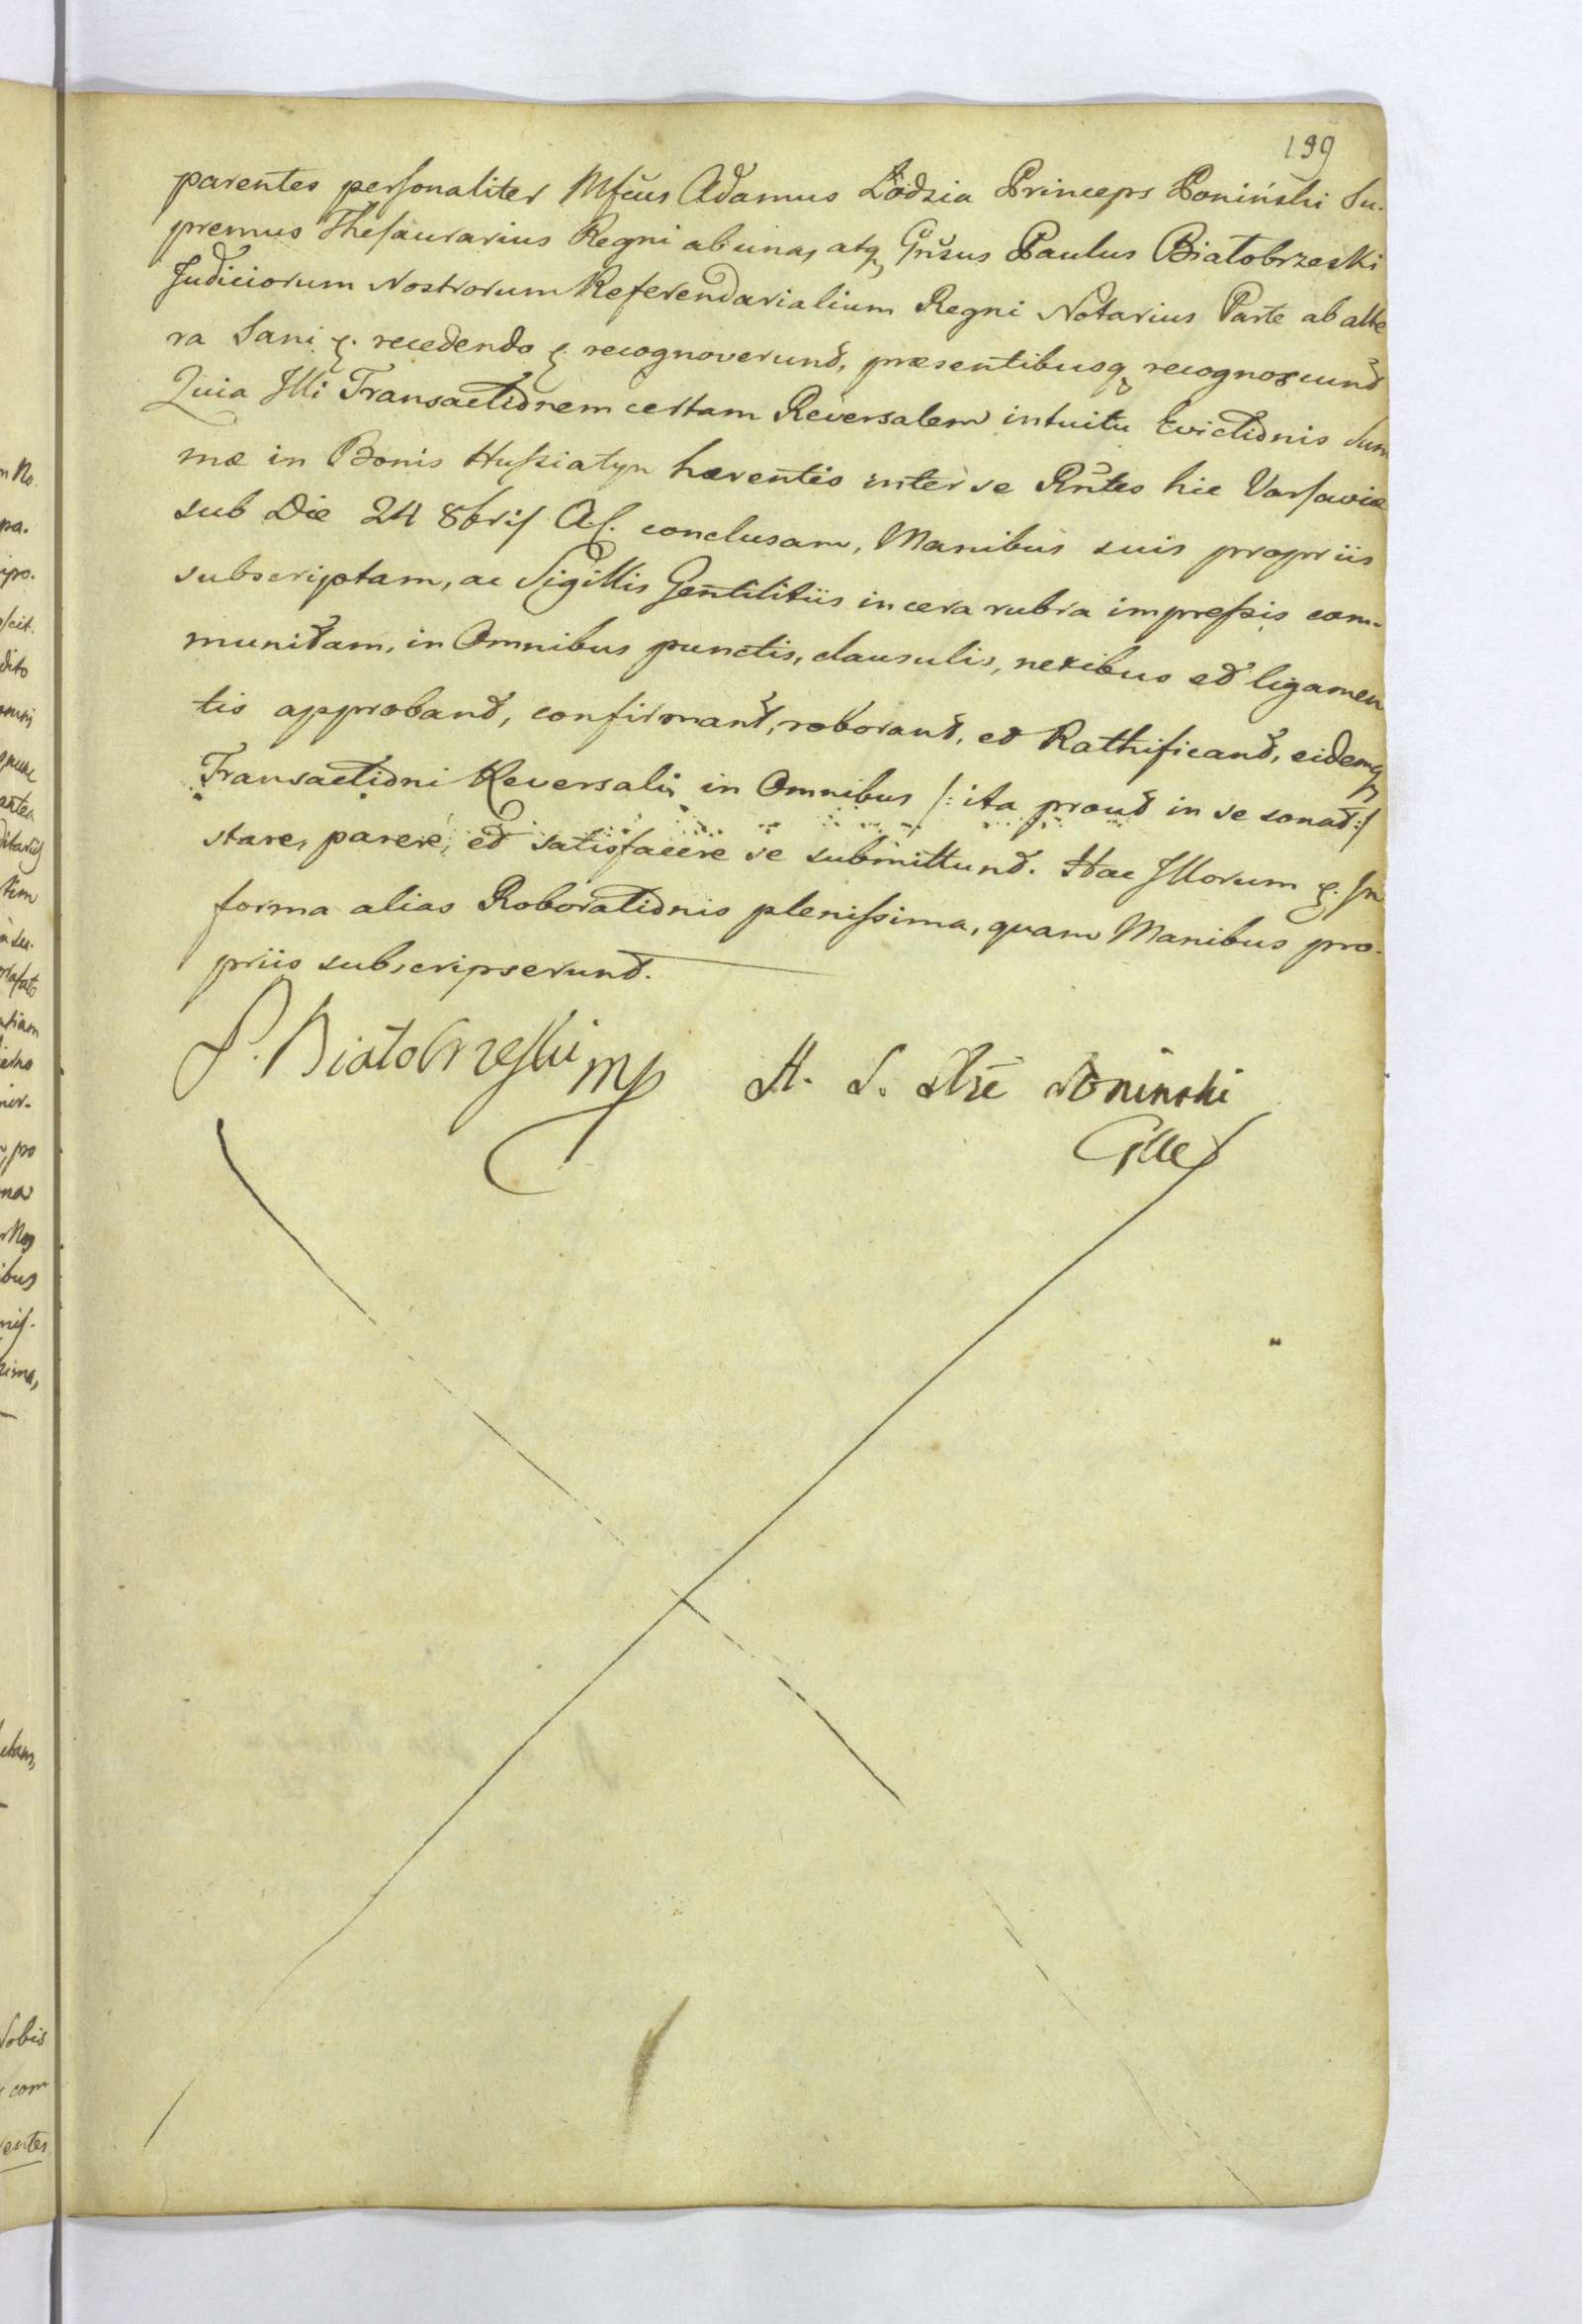 199
parentes personaliter Mfcus Adamus Łodzia Princeps Poninski Su-
premus Thesaurarius Regni ab una, atq Gnsus Paulus Białobrzeski
Judiciorum Nostrorum Referendarialium Regni Notarius Parte ab alte
ra Sani &. recedendo &. recognoverunt, præsentibusq recognoscunt
Quia Illi Transactionem certam Reversalem intuitu Evictionis Sum
mæ in Bonis Hussiatyn hærentis inter se Rntes hic Varsaviæ
sub Die 24 8bris A. c. conclusam, Manibus suis propriis
subscriptam, ac Sigillis Gentilitiis in cera rubra impressis com-
munitam, in Omnibus punctis, clausulis, nexibus et ligamen
tis approbant, confirmant, roborant, et Rathificant, eidemq
Transactioni Reversali in Omnibus /: ita prout in se sonat :/
stare, parere, et satisfacere se submittunt. Hac Illorum &. In
forma alias Roborationis plenissima, quam Manibus pro-
priis subscripserunt.
P. Białobrzeski mp A. Ł. Poninski